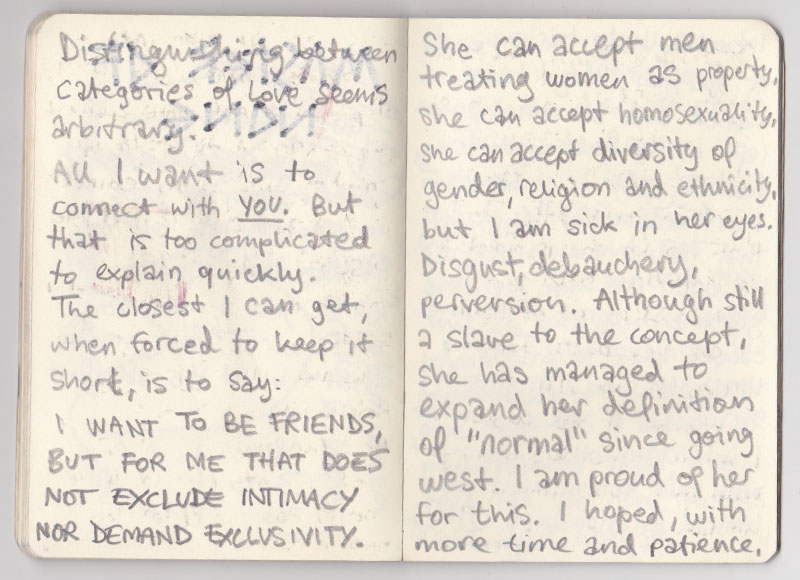 Distinguishing between
categories of love seems
arbitrary.
All I want is to
connect with YOU. But
that is too complicated
to explain quickly.
The closest I can get,
when forced to keep it
short, is to say:
I WANT TO BE FRIENDS,
BUT FOR ME THAT DOES
NOT EXCLUDE INTIMACY
NOR DEMAND EXCLUSIVITY.
She can accept men
treating women as property,
she can accept homosexuality,
she can accept diversity of
gender, religion and ethnicity,
but I am sick in her eyes.
Disgust, debauchery,
perversion. Although still
a slave to the concept,
she has managed to
expand her definition
of "normal" since going
west. I am proud of her
for this. I hoped, with
more time and patience,